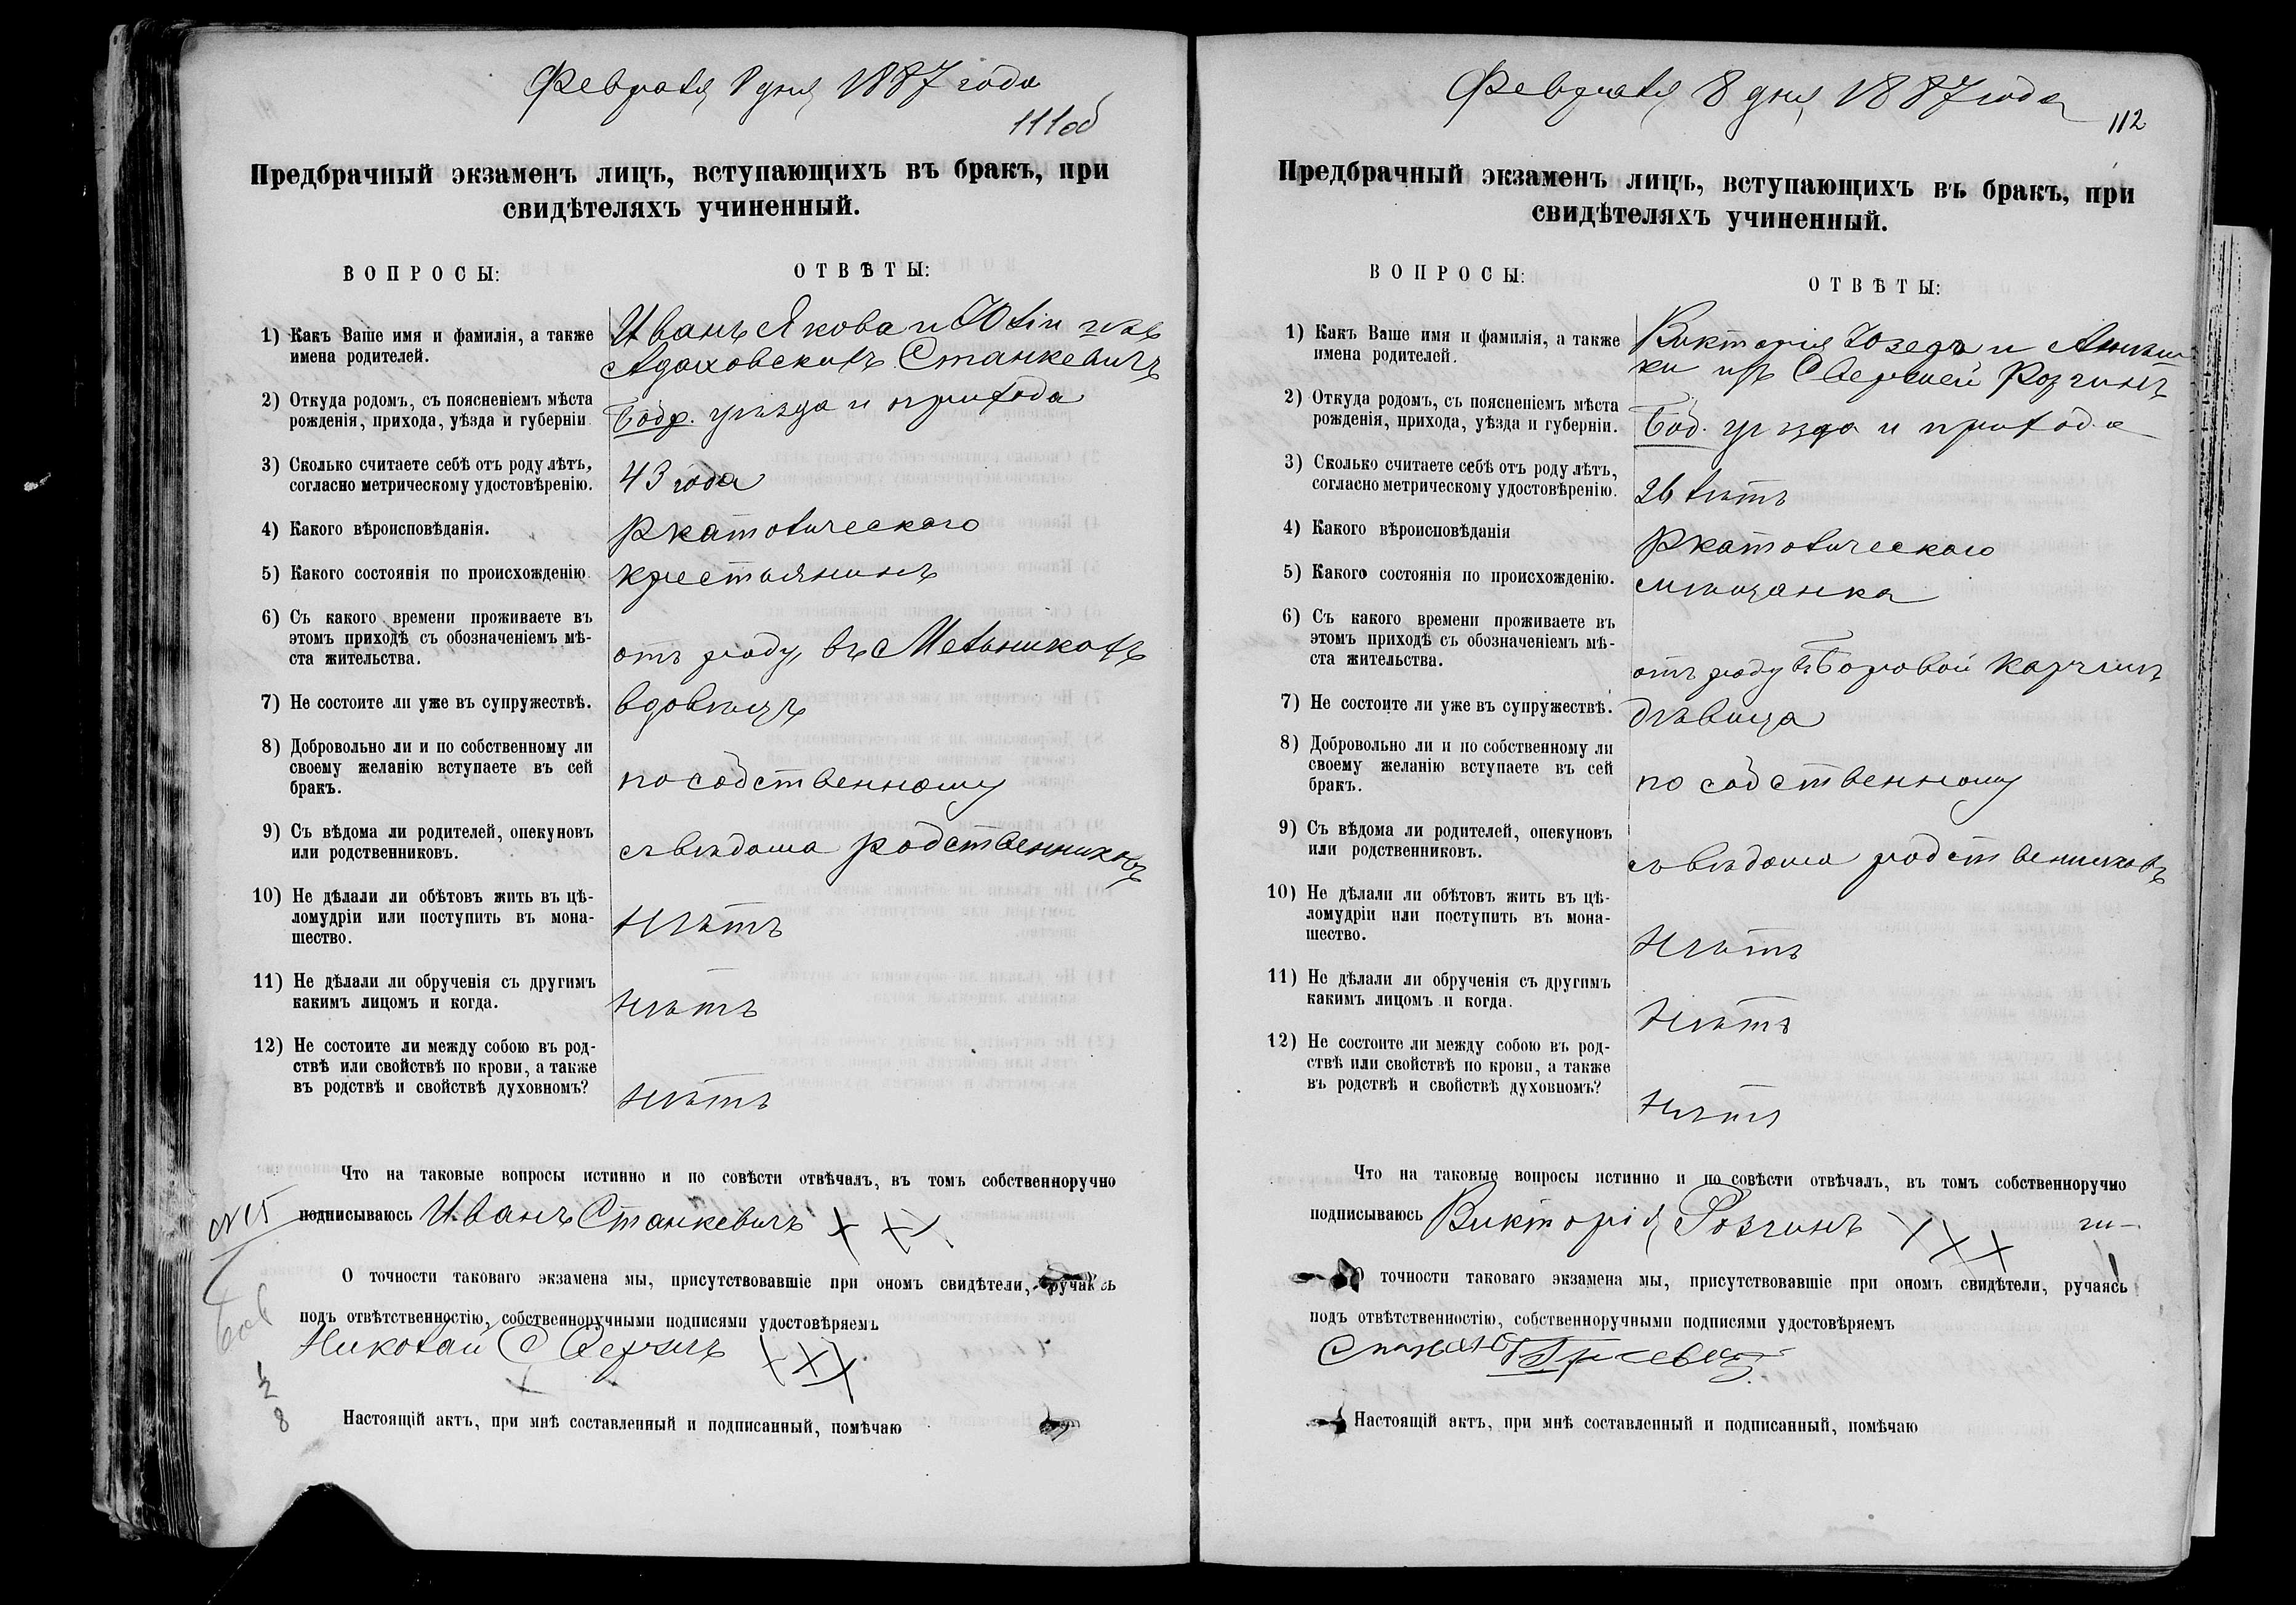 Февраля 8 дня 1887 года
111об
Предбрачный экзаменъ лицъ, вступающихъ въ бракъ, при
свидѣтеляхъ учиненный.
ВОПРОСЫ:
ОТВѢТЫ:
1) Какъ Ваше имя и фамилія, а также
имена родителей.
Иванъ Якова и Юліи изъ
Адаховскихъ Станкевичъ
2) Откуда родомъ, съ поясненіемъ мѣста
рожденія, прихода, уѣзда и губерніи
Бобр. уѣзда и прихода
3) Сколько считаете себѣ отъ роду лѣтъ,
согласно метрическому удостовѣренію.
43 года
4) Какого вѣроисповѣданія.
Ркатолическаго
5) Какого состоянія по происхожденію
крестьянинъ
6) Съ какого времени проживаете въ
этомъ приходѣ съ обозначеніемъ мѣ-
ста жительства.
отъ роду, въ Мельникахъ
7) Не состоите ли уже въ супружествѣ.
вдовецъ
8) Добровольно ли и по собственному ли
своему желанію вступаете въ сей
бракъ.
по собственному
9) Съ вѣдома ли родителей, опекуновъ
или родственниковъ.
съ вѣдома родственниковъ
10) Не дѣлали ли обѣтовъ жить въ цѣ-
ломудріи или поступить въ мона-
шество.
Нѣтъ
11) Не дѣлали ли обрученія съ другимъ
какимъ лицомъ и когда.
Нѣтъ
12) Не состоите ли между собою въ род-
ствѣ или свойствѣ по крови, а также
въ родствѣ и свойствѣ духовномъ?
Нѣтъ
Что на таковые вопросы истинно и по совѣсти отвѣчалъ, въ томъ собственноручно
подписываюсь Иванъ Станкевичъ XXX
№15
О точности таковаго экзамена мы, присутствовавшіе при ономъ свидѣтели, ручаясь
подъ отвѣтственностію, собственноручными подписями удостовѣряемъ
Николай XXX
Настоящій актъ, при мнѣ составленный и подписанный, помѣчаю
Февраля 8 дня 1887 года
112
Предбрачный экзаменъ лицъ, вступающихъ въ бракъ, при
свидѣтеляхъ учиненный.
ВОПРОСЫ:
ОТВѢТЫ:
1) Какъ Ваше имя и фамилія, а также
имена родителей.
Викторія Юзефа и Анѣш
ки изъ Розчинъ
2) Откуда родомъ, съ поясненіемъ мѣста
рожденія, прихода, уѣзда и губерніи.
Боб. уѣзда и прихода
3) Сколько считаете себѣ отъ роду лѣтъ,
согласно метрическому удостовѣренію.
26 лѣтъ
4) Какого вѣроисповѣданія
Ркатолическаго
5) Какого состоянія по происхожденію.
мѣщанка
6) Съ какого времени проживаете въ
этомъ приходѣ съ обозначеніемъ мѣ-
ста жительства.
отъ роду въ Боровой Карчмѣ
7) Не состоите ли уже въ супружествѣ.
дѣвица
8) Добровольно ли и по собственному ли
своему желанію вступаете въ сей
бракъ.
по собственному
9) Съ вѣдома ли родителей, опекуновъ
или родственниковъ.
съ вѣдома родственниковъ
10) Не дѣлали ли обѣтовъ жить въ цѣ-
ломудріи или поступить въ мона-
шество.
Нѣтъ
11) Не дѣлали ли обрученія съ другимъ
какимъ лицомъ и когда.
Нѣтъ
12) Не состоите ли между собою въ род-
ствѣ или свойствѣ по крови, а также
въ родствѣ и свойствѣ духовномъ?
Нѣтъ
Что на таковые вопросы истинно и по совѣсти отвѣчалъ, въ томъ собственноручно
подписываюсь Викторія Розчинъ XXX
точности таковаго экзамена мы, присутствовавшіе при ономъ свидѣтели, ручаясь
подъ отвѣтственностію, собственноручными подписями удостовѣряемъ
Настоящій актъ, при мнѣ составленный и подписанный, помѣчаю